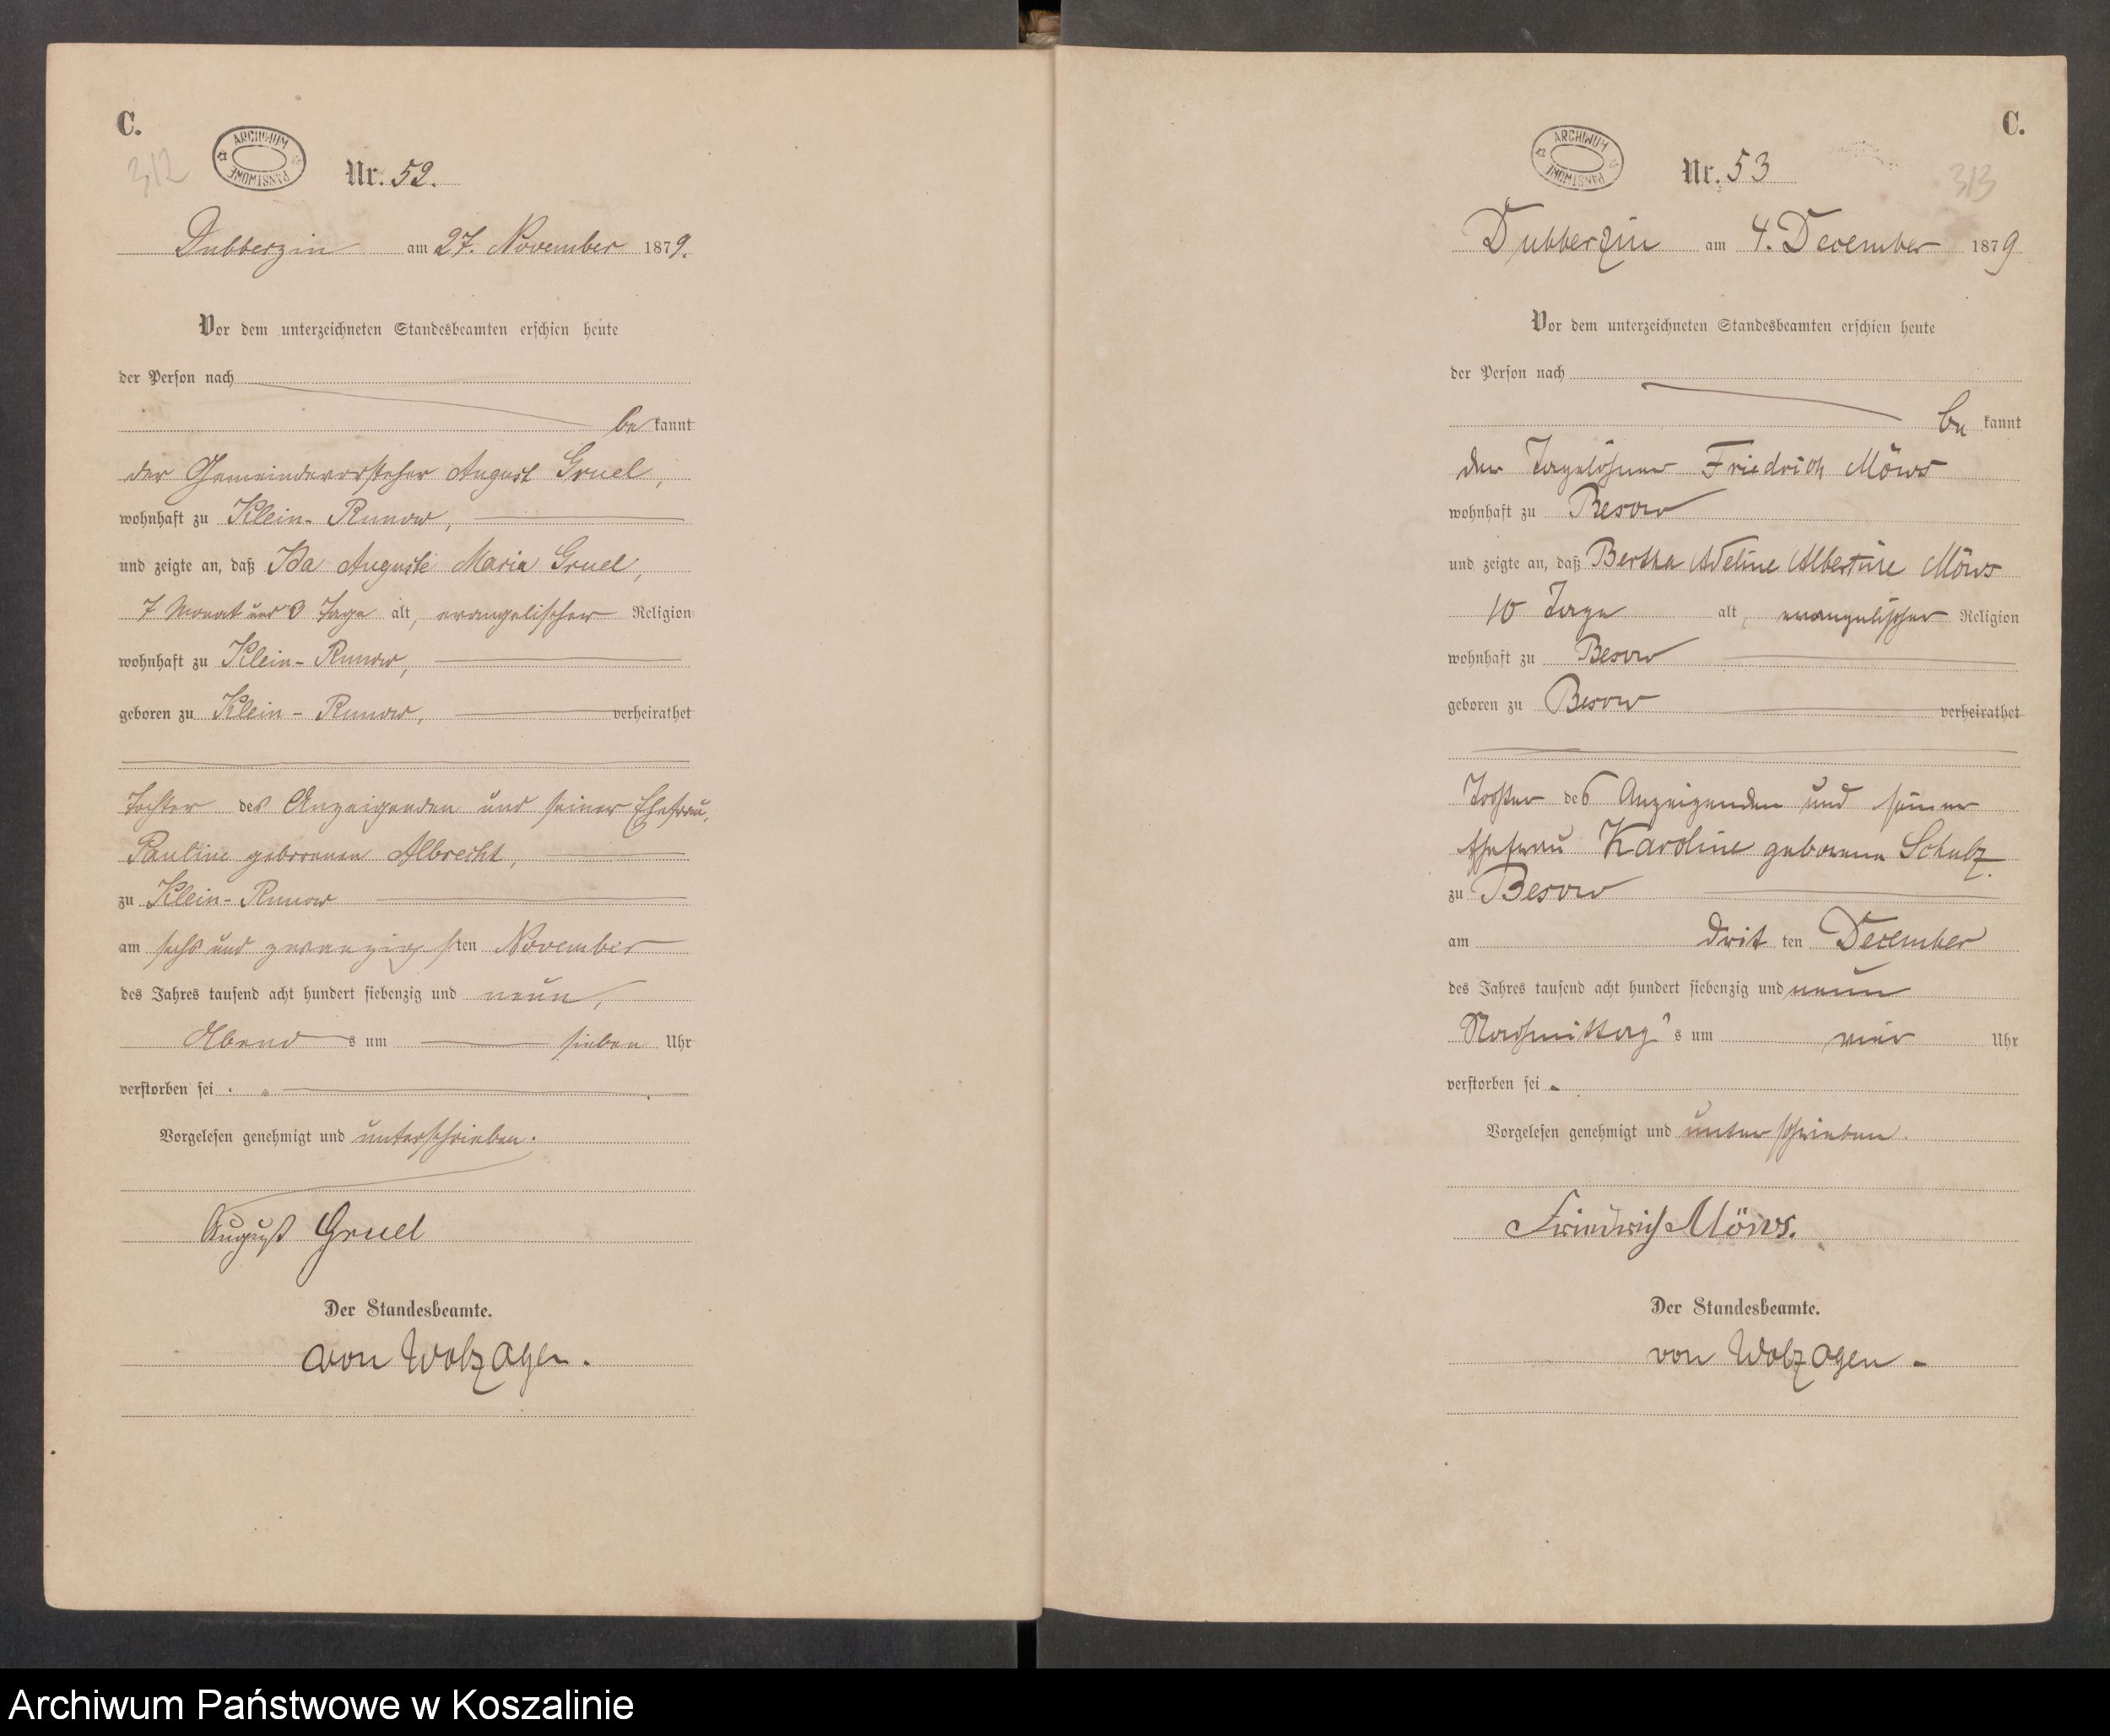 C.
312
ARCHIWUM PAŃSTWOWE
Nr. 52.
Dubberzin am 27. November 1879.
Vor dem unterzeichneten Standesbeamten erschien heute
der Person nach
bekannt
der Gemeindevorsteher August Gruel,
wohnhaft zu Klein-Runow,
und zeigte an, daß Ida Auguste Maria Gruel,
7 Monat und 3 Tage alt, evangelischer Religion
wohnhaft zu Klein-Runow,
geboren zu Klein-Runow, verheirathet
Tochter des Anzeigenden und seiner Ehefrau,
Pauline geborenen Albrecht,
zu Klein-Runow
am sechs und zwanzigsten November
des Jahres tausend acht hundert siebenzig und neun,
Abends um sieben Uhr
verstorben sei.
Vorgelesen genehmigt und unterschrieben.
August Gruel
Der Standesbeamte.
von Wolzogen.
C.
313
ARCHIWUM PAŃSTWOWE
Nr. 53
Dubberzin am 4. December 1879
Vor dem unterzeichneten Standesbeamten erschien heute
der Person nach
bekannt
der Tagelöhner Friedrich Möws
wohnhaft zu Besow
und zeigte an, daß Bertha Adeline Albertine Möws
10 Tage alt, evangelischer Religion
wohnhaft zu Besow
geboren zu Besow verheirathet
Tochter des Anzeigenden und seiner
Ehefrau Karoline geborene Schulz
zu Besow
am dritten December
des Jahres tausend acht hundert siebenzig und neun
Nachmittag's um vier Uhr
verstorben sei.
Vorgelesen genehmigt und unterschrieben.
Friedrich Möws.
Der Standesbeamte.
von Wolzogen
Archiwum Państwowe w Koszalinie